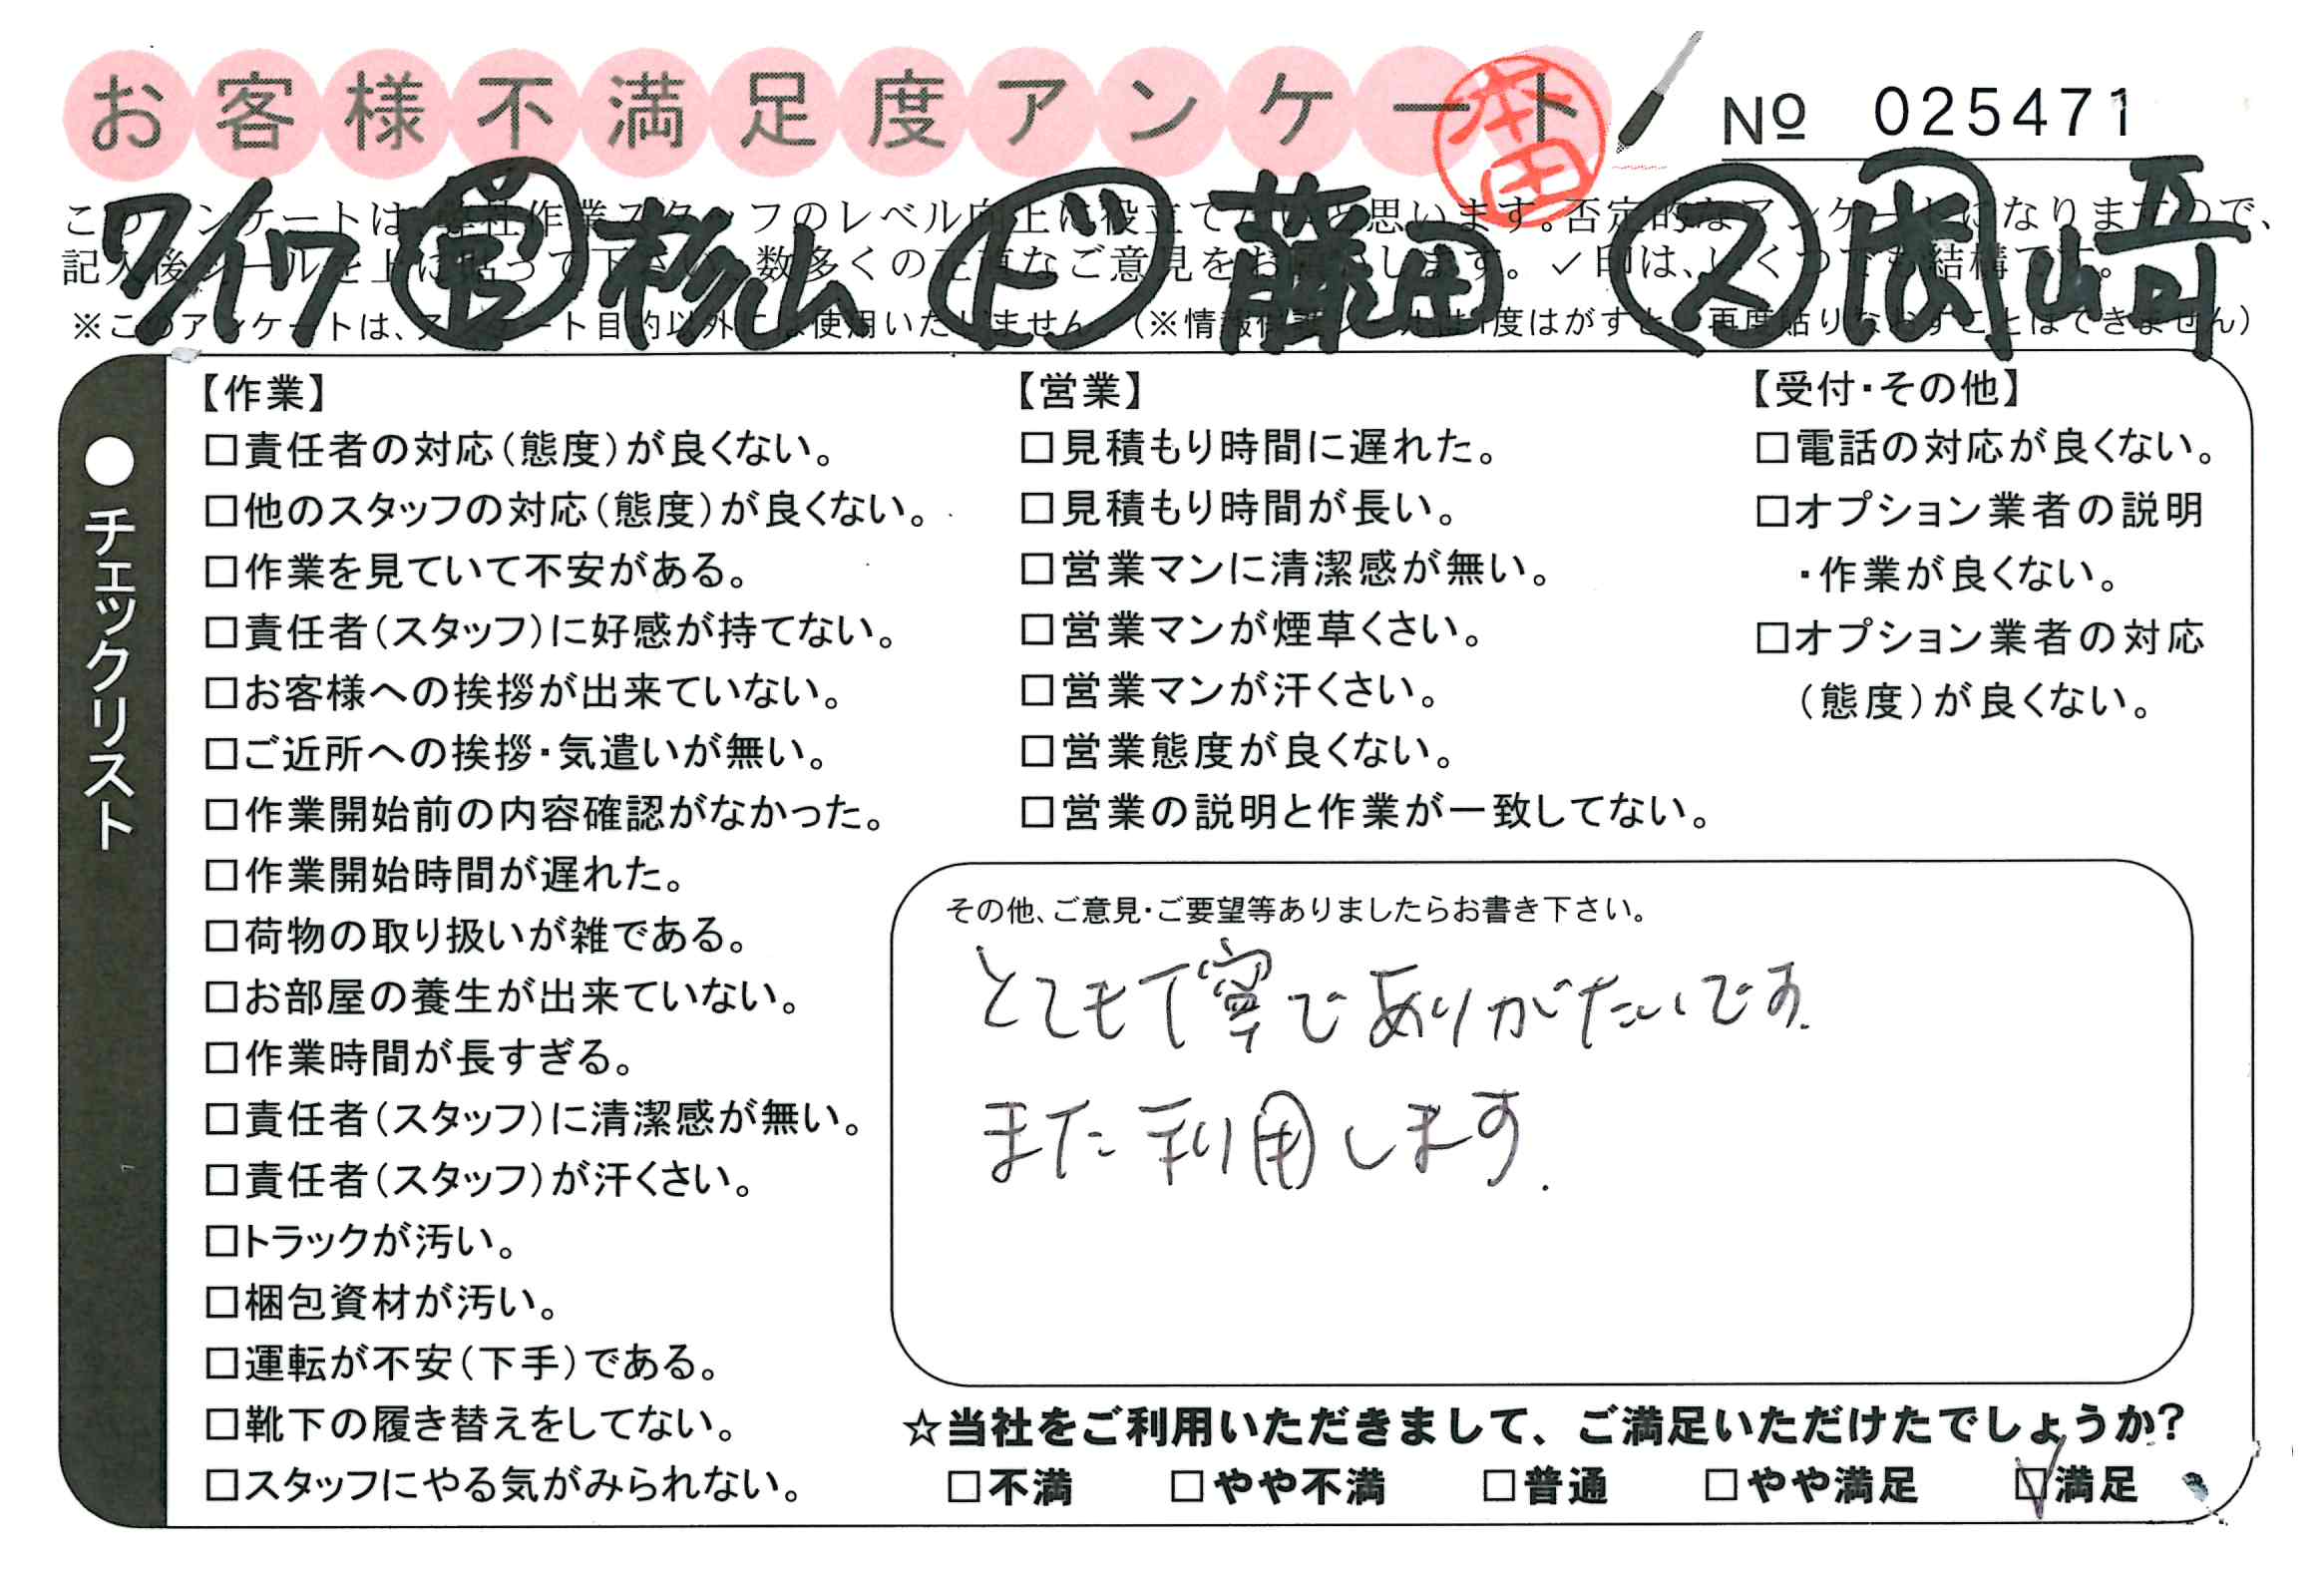 お客様不満足度アンケート
本田
№ 025471
7/17 杉山 ド 藤田 ス 岡崎
※このアンケートは、アンケート目的以外には使用いたしません。(※情報保護シールは1度はがすと、再度貼りなおすことはできません)
●チェックリスト
【作業】
□責任者の対応(態度)が良くない。
□他のスタッフの対応(態度)が良くない。
□作業を見ていて不安がある。
□責任者(スタッフ)に好感が持てない。
□お客様への挨拶が出来ていない。
□ご近所への挨拶・気遣いが無い。
□作業開始前の内容確認がなかった。
□作業開始時間が遅れた。
□荷物の取り扱いが雑である。
□お部屋の養生が出来ていない。
□作業時間が長すぎる。
□責任者(スタッフ)に清潔感が無い。
□責任者(スタッフ)が汗くさい。
□トラックが汚い。
□梱包資材が汚い。
□運転が不安(下手)である。
□靴下の履き替えをしてない。
□スタッフにやる気がみられない。
【営業】
□見積もり時間に遅れた。
□見積もり時間が長い。
□営業マンに清潔感が無い。
□営業マンが煙草くさい。
□営業マンが汗くさい。
□営業態度が良くない。
□営業の説明と作業が一致してない。
【受付・その他】
□電話の対応が良くない。
□オプション業者の説明
・作業が良くない。
□オプション業者の対応
(態度)が良くない。
その他、ご意見・ご要望等ありましたらお書き下さい。
とても丁寧でありがたいです.
また利用します.
☆当社をご利用いただきまして、ご満足いただけたでしょうか?
□不満 □やや不満 □普通 □やや満足 ☑満足